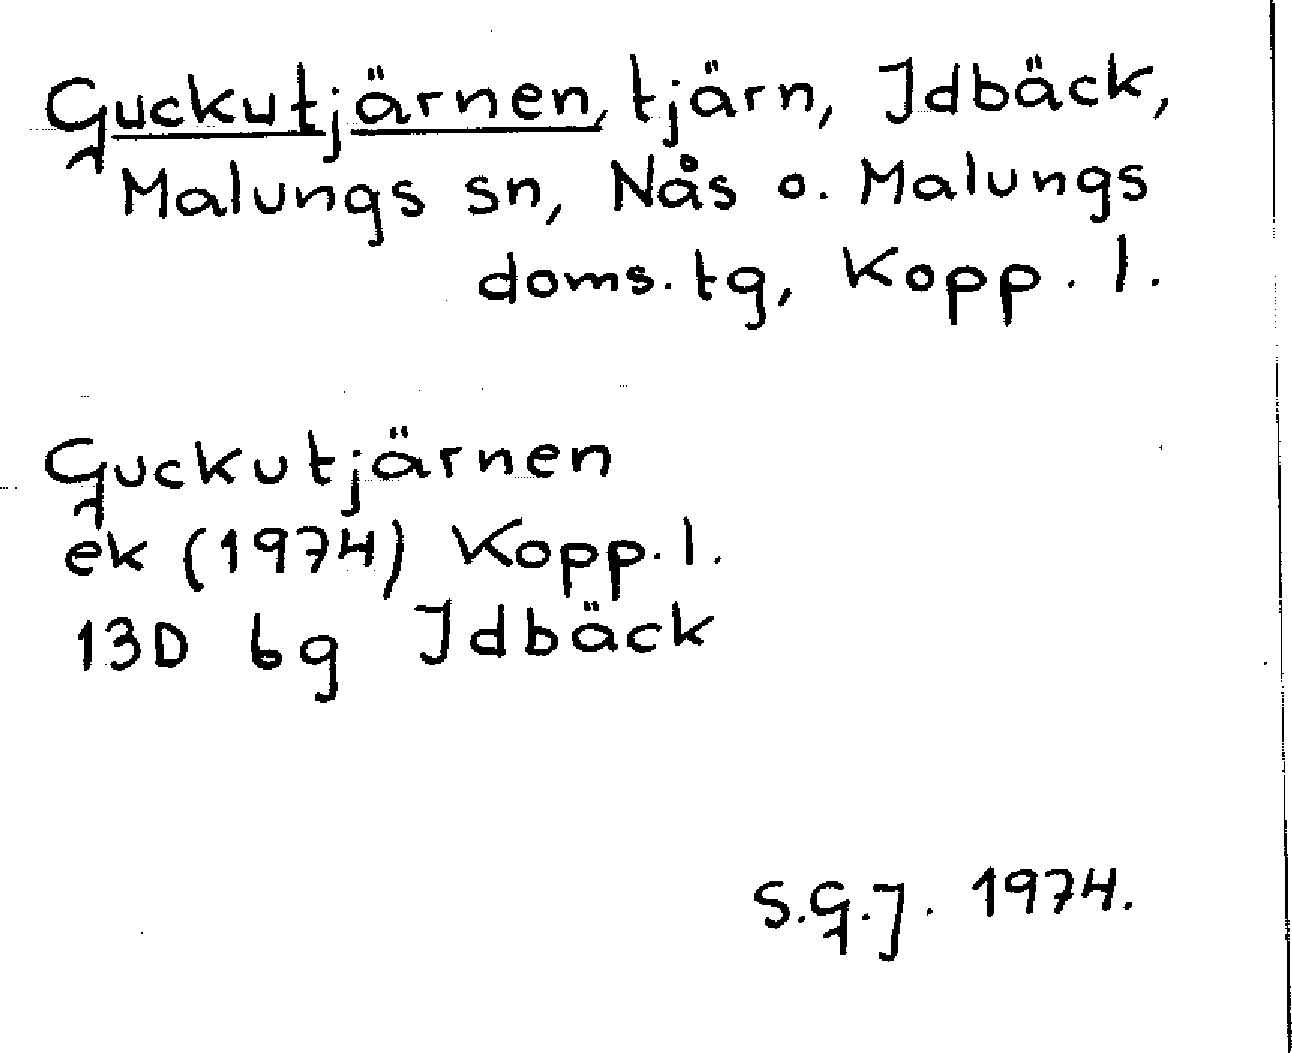 Guckutjärnen, tjärn, Idbäck,
Malungs sn, Nås o. Malungs
doms. tg, Kopp. l.
Guckutjärnen
ek (1974) Kopp. l.
13D bg Idbäck
S.G.J. 1974.